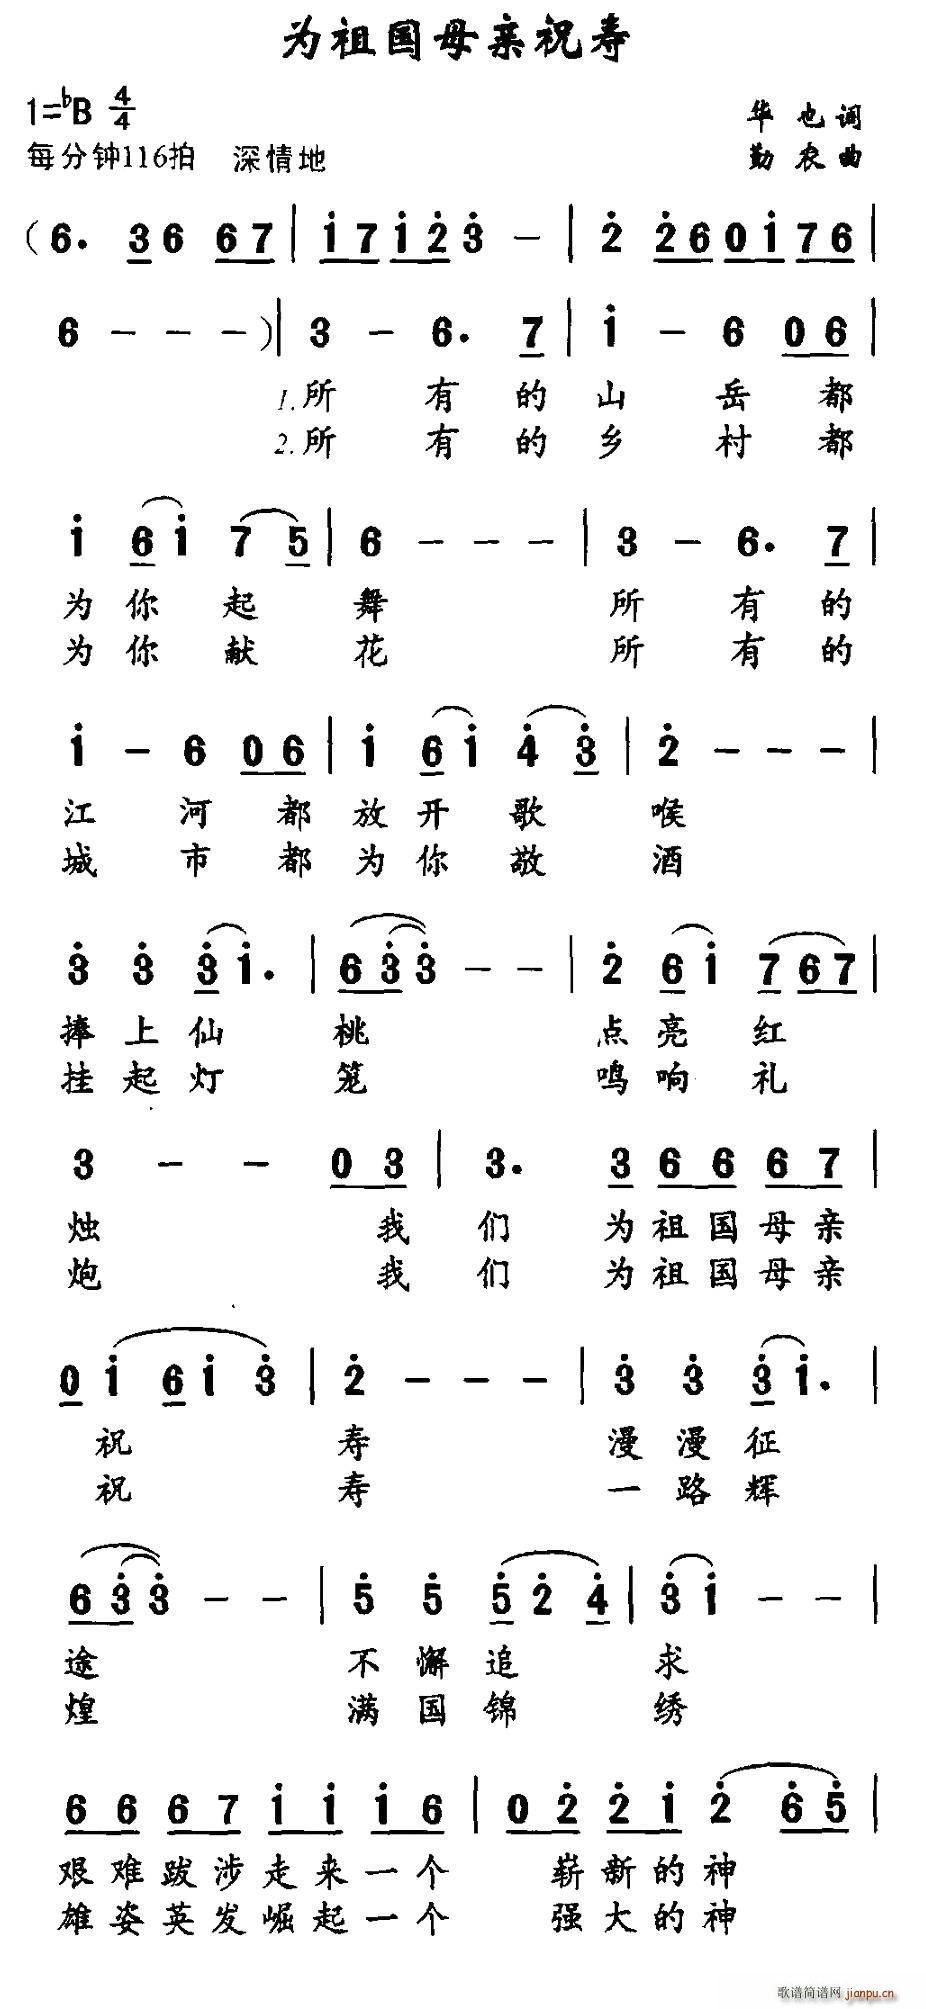 为祖国母亲祝寿
1=♭B 4/4
华也词
每分钟116拍 深情地
勤农曲
(6. 36 67 | i7 i2 3 - | 2 26 0i 76 |
6 - - - ) | 3 - 6. 7 | i - 6 06 |
1.所有的山岳都
2.所有的乡村都
i 6i 75 | 6 - - - | 3 - 6. 7 |
为你起舞 所有的
为你献花 所有的
i - 6 06 | i 6i 43 | 2 - - - |
江河都放开歌喉
城市都为你敬酒
3 3 3i. | 633 - - | 2 6i 767 |
捧上仙桃 点亮红
挂起灯笼 鸣响礼
3 - - 03 | 3. 3 66 67 |
烛 我们 为祖国母亲
炮 我们 为祖国母亲
0i 6i 3 | 2 - - - | 3 3 3i. |
祝寿 漫漫征
祝寿 一路辉
633 - - | 5 5 524 | 3i - - |
途 不懈追求
煌 满国锦绣
66 67 ii i6 | 02 2i 2 65 |
艰难跋涉走来一个 崭新的神
雄姿英发崛起一个 强大的神
歌谱简谱网 jianpu.cn